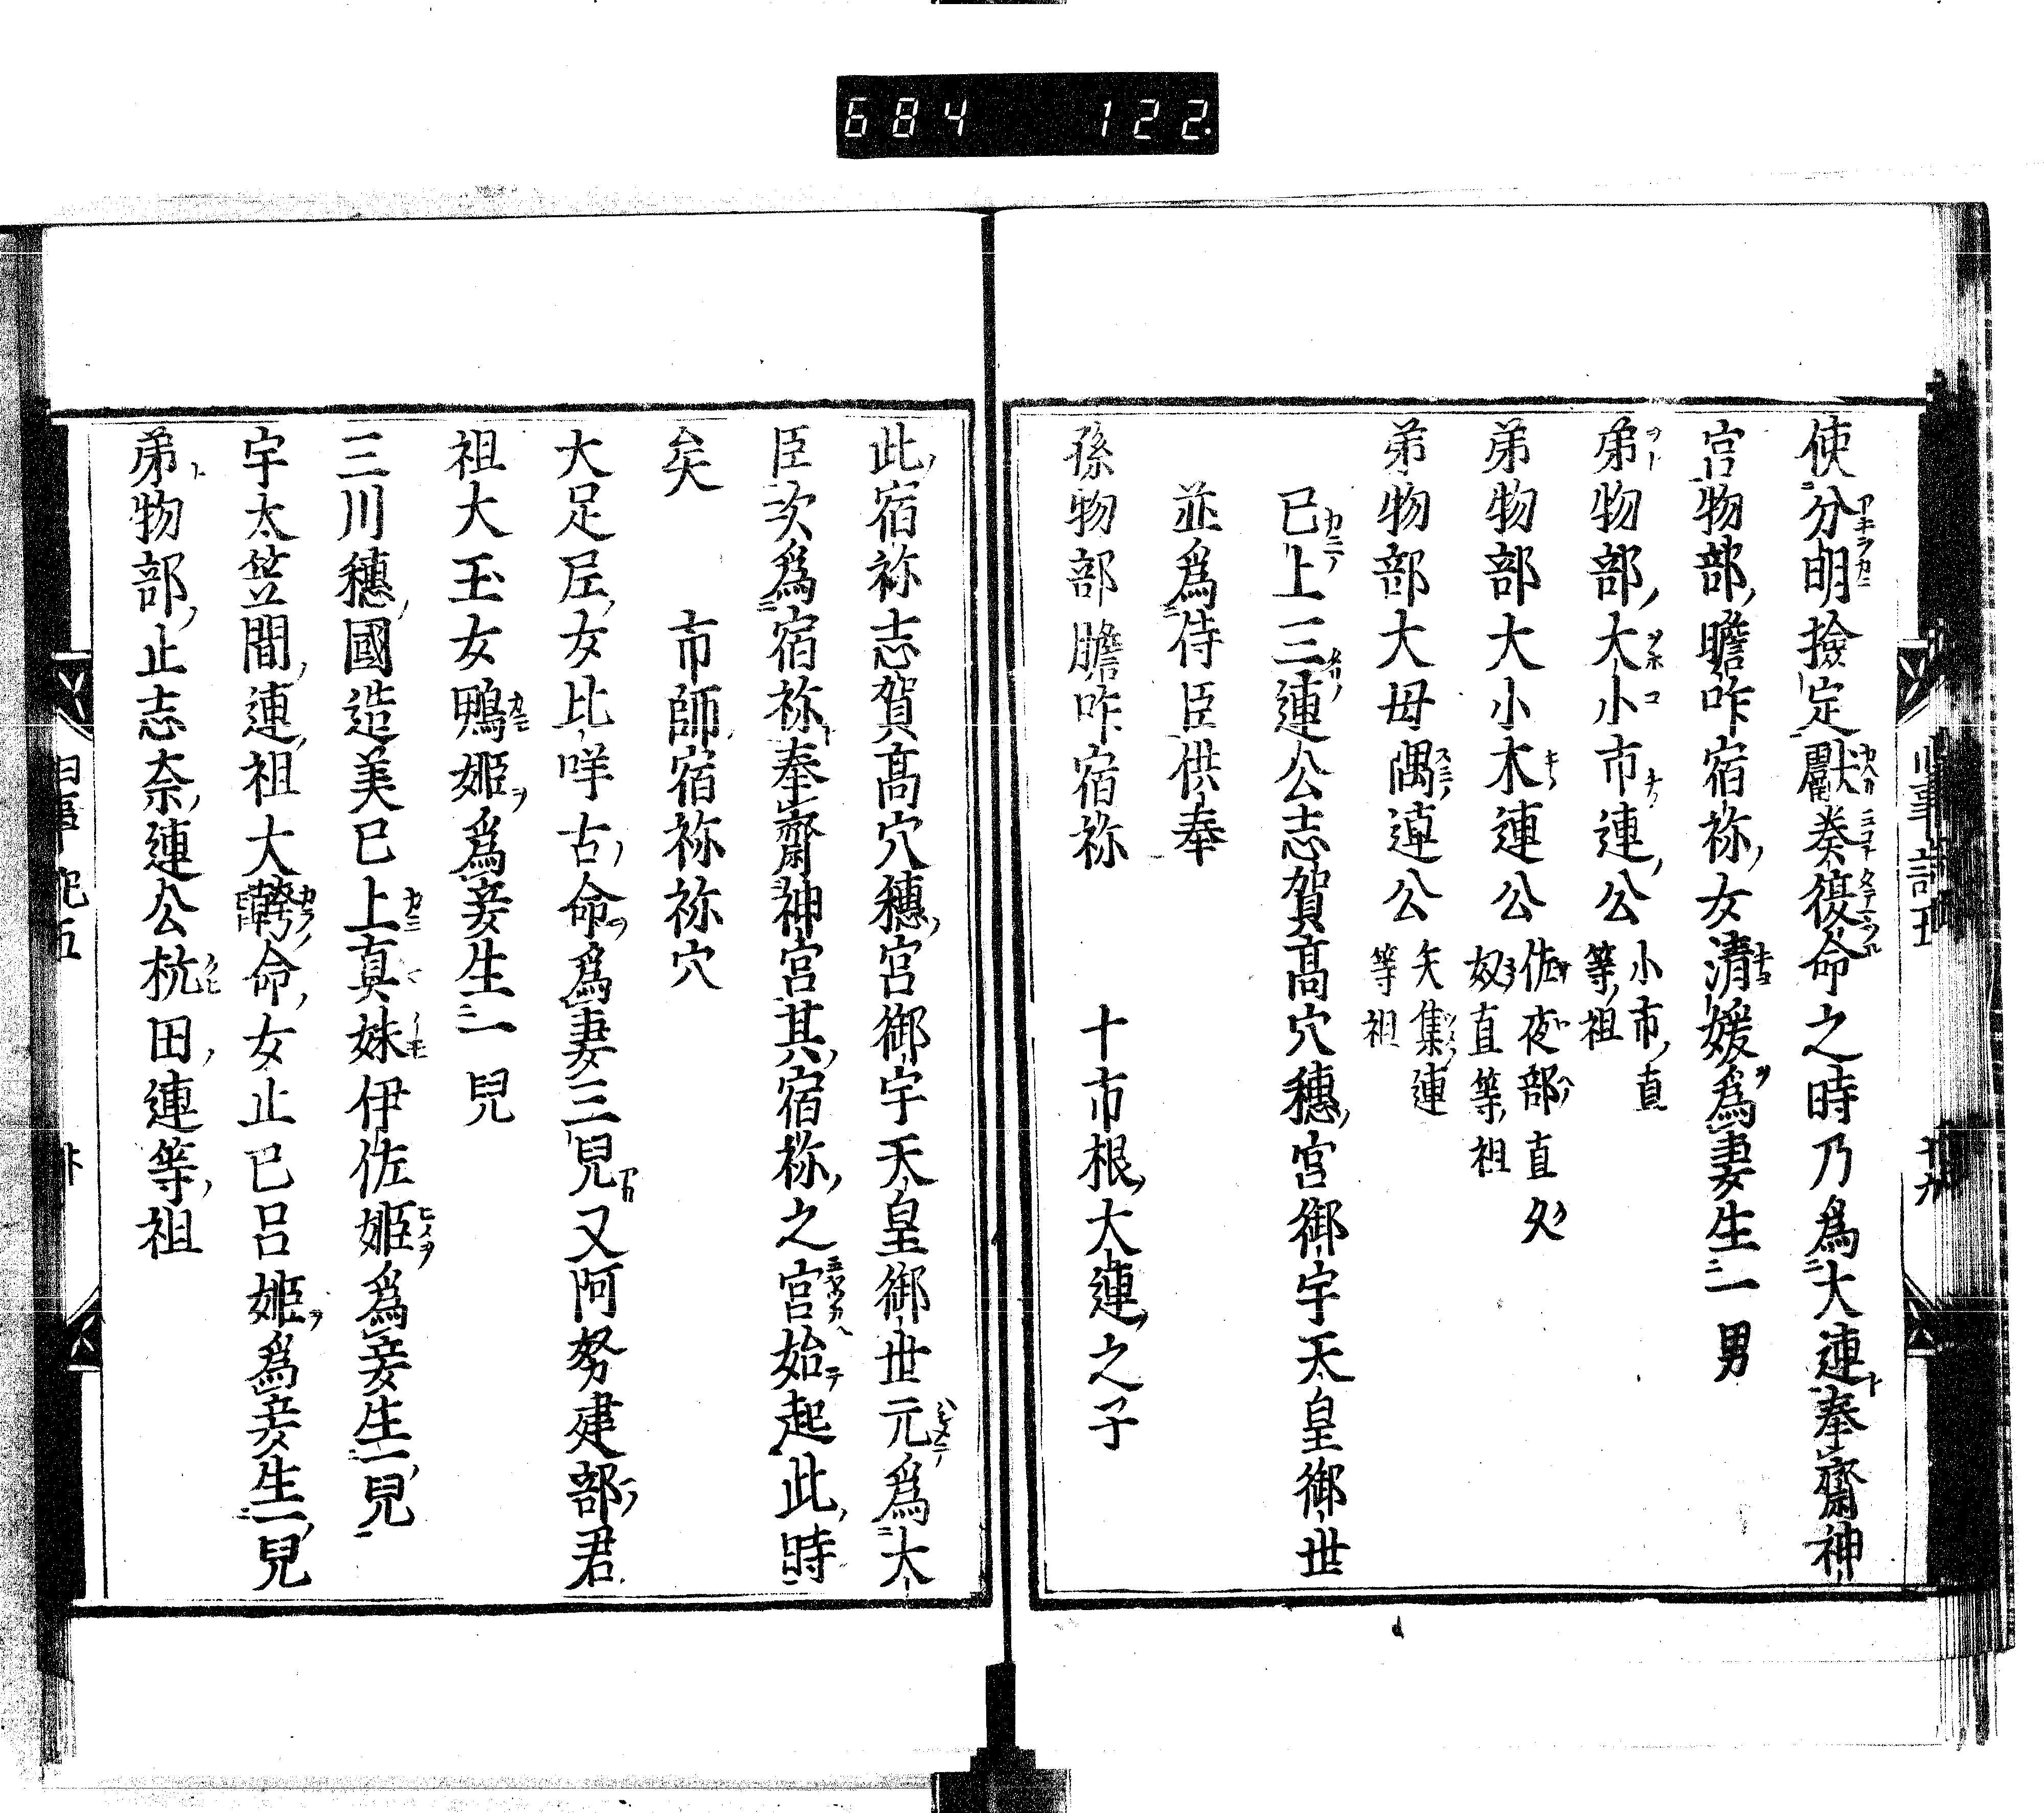 684 122.
使分明撿定獻奏復命之時乃爲大連奉齋神
宮物部膽咋宿祢女清媛爲妻生一男
弟物部大小市連公 小市直等祖
弟物部大小木連公 佐夜部直久奴直等祖
弟物部大母隅連公 矢集連等祖
已上三連公志賀高穴穗宮御宇天皇御世
並爲侍臣供奉
孫物部膽咋宿祢 十市根大連之子
此宿祢志賀高穴穗宮御宇天皇御世元爲大
臣次爲宿祢奉齋神宮其宿祢之官始起此時
矣 市師宿祢祢穴
大足尼女比咩古命爲妻三兒又阿努建部君
祖大玉女鴨姬爲妾生一兒
三川穗國造美已上真妹伊佐姬爲妾生一兒
宇太笠間連祖大幹命女止已呂姬爲妾生一兒
弟物部止志奈連公杭田連等祖